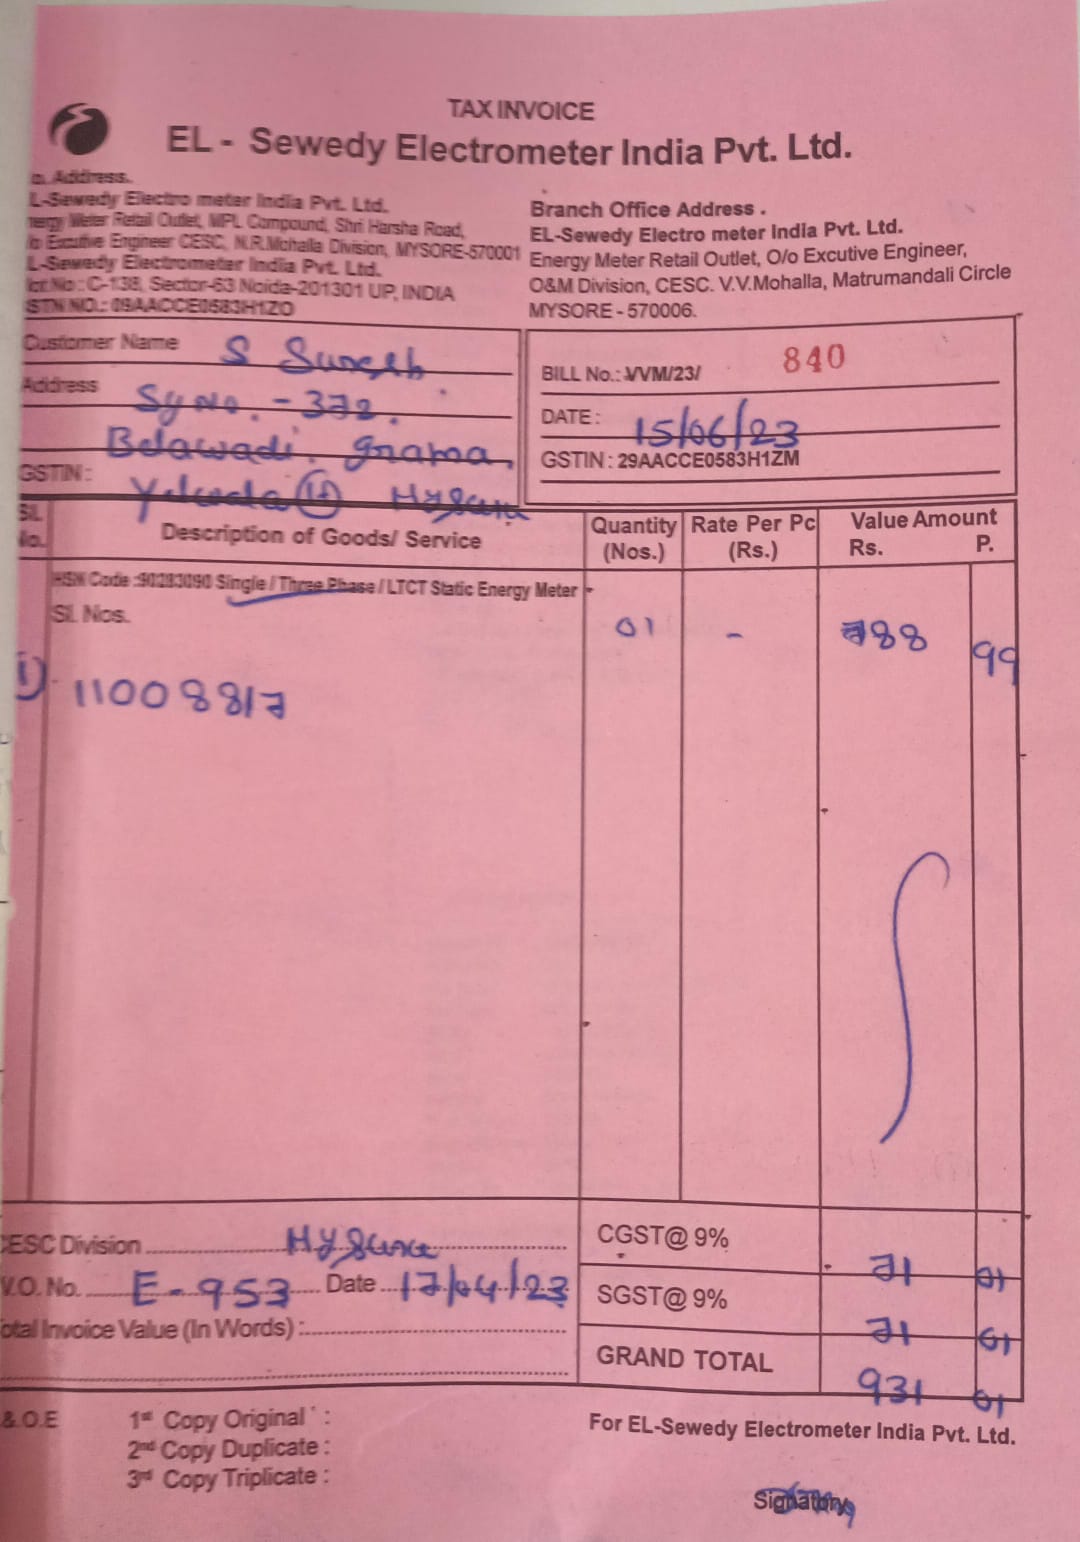 TAX INVOICE
EL - Sewedy Electrometer India Pvt. Ltd.
o. Address.
L-Sewedy Electro meter India Pvt. Ltd.
nergy Meter Retail Outlet, MPL Compound, Shri Harsha Road,
/o Excutive Engineer CESC, N.R.Mohalla Division, MYSORE-570001
L-Sewedy Electrometer India Pvt. Ltd.
lot No : C-138, Sector-63 Noida-201301 UP, INDIA
STN NO.: 09AACCE0583H1ZO
Branch Office Address .
EL-Sewedy Electro meter India Pvt. Ltd.
Energy Meter Retail Outlet, O/o Excutive Engineer,
O&M Division, CESC. V.V.Mohalla, Matrumandali Circle
MYSORE - 570006.
Customer Name S Suresh
Address Sy No. - 372.
Belawadi grama,
GSTIN : Yelwala (H) Mysuru
BILL No.: VVM/23/ 840
DATE : 15/06/23
GSTIN : 29AACCE0583H1ZM
Sl. No. Description of Goods/ Service Quantity (Nos.) Rate Per Pc (Rs.) Value Amount Rs. P.
HSN Code :90283090 Single / Three Phase / LTCT Static Energy Meter
Sl. Nos. 01 - 788 99
1) 11008817
CESC Division Mysuru
W.O. No. E-953 Date 17/04/23
Total Invoice Value (In Words) :
CGST@ 9% 71 01
SGST@ 9% 71 01
GRAND TOTAL 931 01
&.O.E
1st Copy Original :
2nd Copy Duplicate :
3rd Copy Triplicate :
For EL-Sewedy Electrometer India Pvt. Ltd.
Signatory